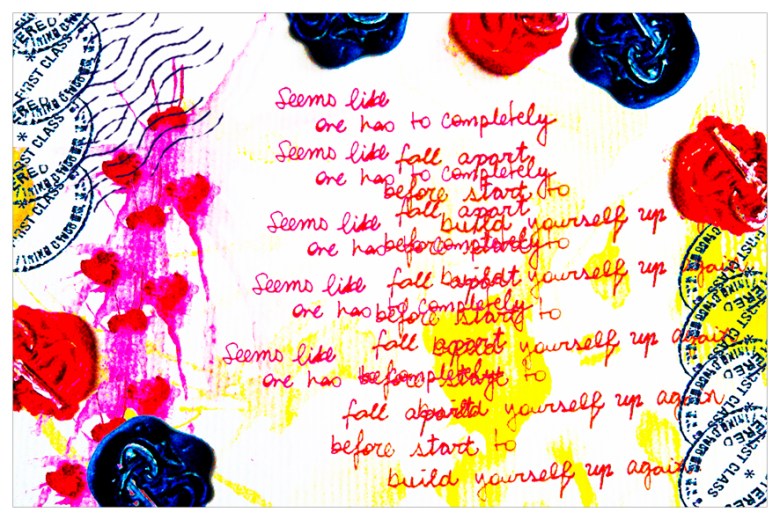 Seems like
one has to completely
Seems like fall apart
one has to completely
before start to
fall apart
build yourself up
Seems like
one has before completely to
fall apart build yourself up again
Seems like
one has to completely
before start to
fall apart build yourself up again
Seems like
one has before completely start to
fall apart build yourself up again
before start to
build yourself up again
FIRST CLASS
FIRST CLASS
FIRST CLASS
FIRST CLASS